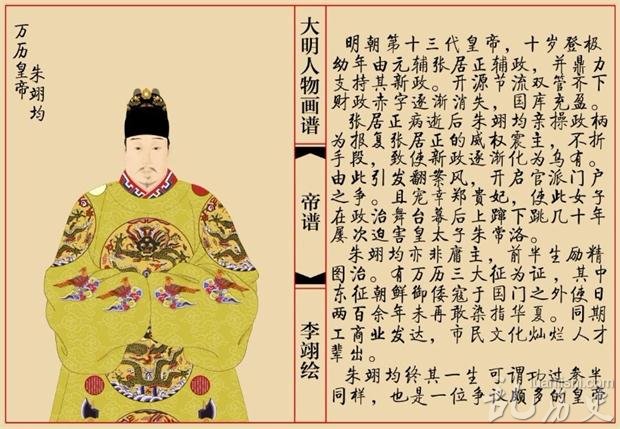 万历皇帝
朱翊均
大明人物画谱
帝谱
李翊绘
明朝第十三代皇帝，十岁登极
幼年由元辅张居正辅政，并鼎力
支持其新政。开源节流双管齐下
财政赤字逐渐消失，国库充盈。
张居正病逝后朱翊均亲操政柄
为报复张居正的威权震主，不折
手段，致使新政逐渐化为乌有。
由此引发翻案风，开启官派门户
之争。且宠幸郑贵妃，使此女子
在政治舞台幕后上蹿下跳几十年
屡次迫害皇太子朱常洛。
朱翊均亦非庸主，前半生励精
图治。有万历三大征为证，其中
东征朝鲜御倭寇于国门之外使日
两百余年未再敢染指华夏。同期
工商业发达，市民文化灿烂人才
辈出。
朱翊均终其一生 可谓功过参半
同样，也是一位争议颇多的皇帝